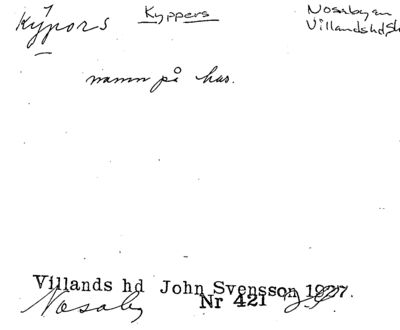 Kypors Kyppers Nosabyen
Villandshd, Sk
namn på hus.
Villands hd John Svensson 1927.
Nosaby Nr 421